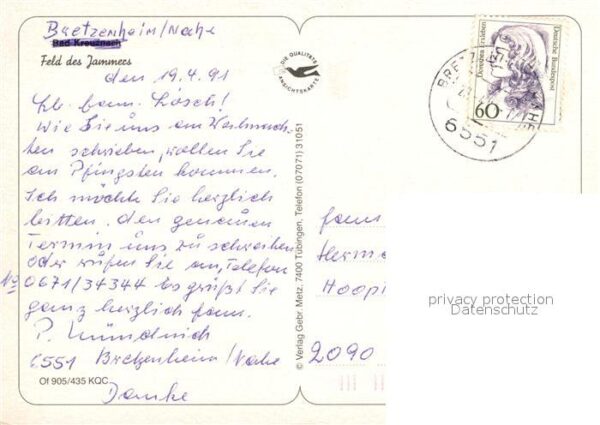 Bretzenheim/Nahe
Bad Kreuznach
Feld des Jammers
den 19.4.91
Lb. fam. Lösch!
Wie Sie uns an Weihnach-
ten schrieben, wollen Sie
an Pfingsten kommen.
Ich möchte Sie herzlich
bitten, den genauen
Termin uns zu schreiben
oder rufen Sie an, Telefon
Nr 0671/34344 Es grüßt Sie
ganz herzlich fam.
P.
6551 Bretzenheim/Nahe
Of 905/435 KQC
Danke
DIE QUALITÄTS
ANSICHTSKARTE
© Verlag Gebr. Metz, 7400 Tübingen, Telefon (07071) 31051
Dorothea Erxleben
Deutsche Bundespost
60
BRETZ
NAHE
6551
fam
Herma
Hoopt
2090
privacy protection
Datenschutz